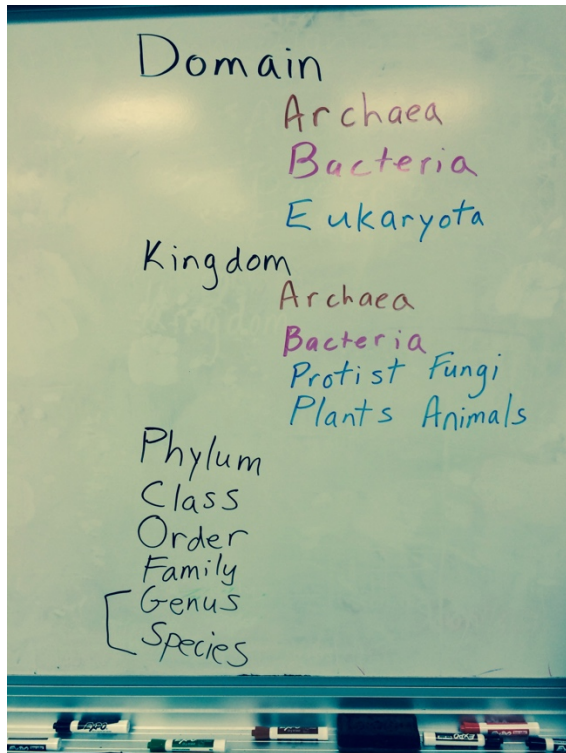 Domain
Archaea
Bacteria
Eukaryota
Kingdom
Archaea
Bacteria
Protist Fungi
Plants Animals
Phylum
Class
Order
Family
Genus
Species
EXPO